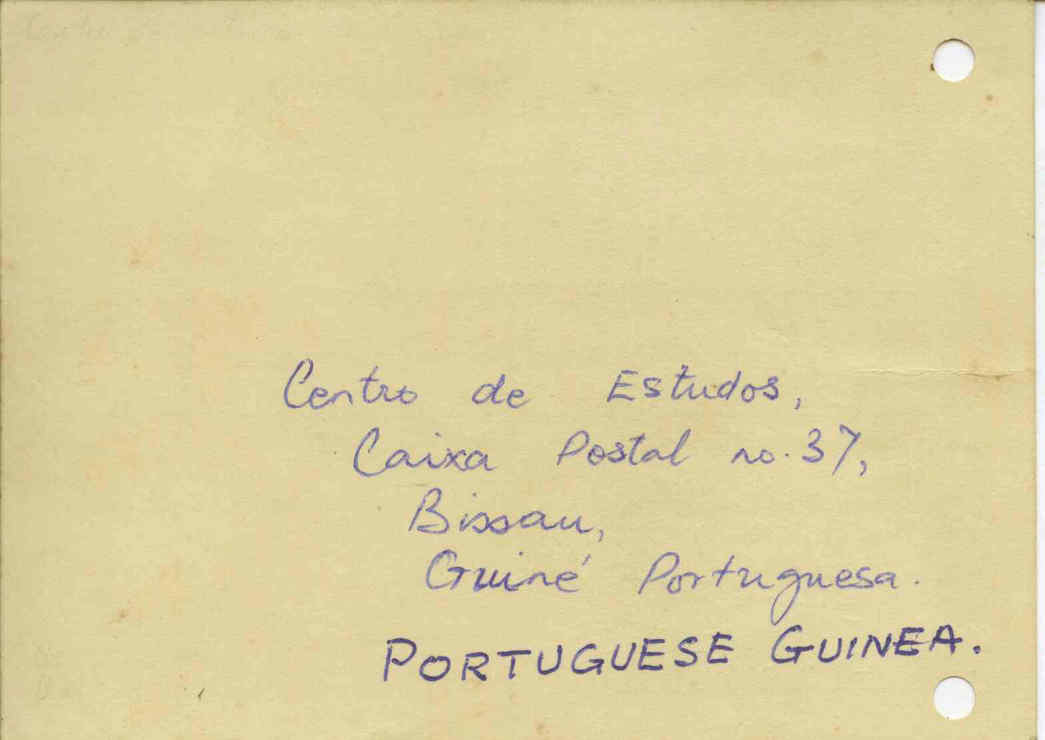 Centro de Estudos,
Caixa Postal no. 37,
Bissau,
Guiné Portuguesa.
PORTUGUESE GUINEA.